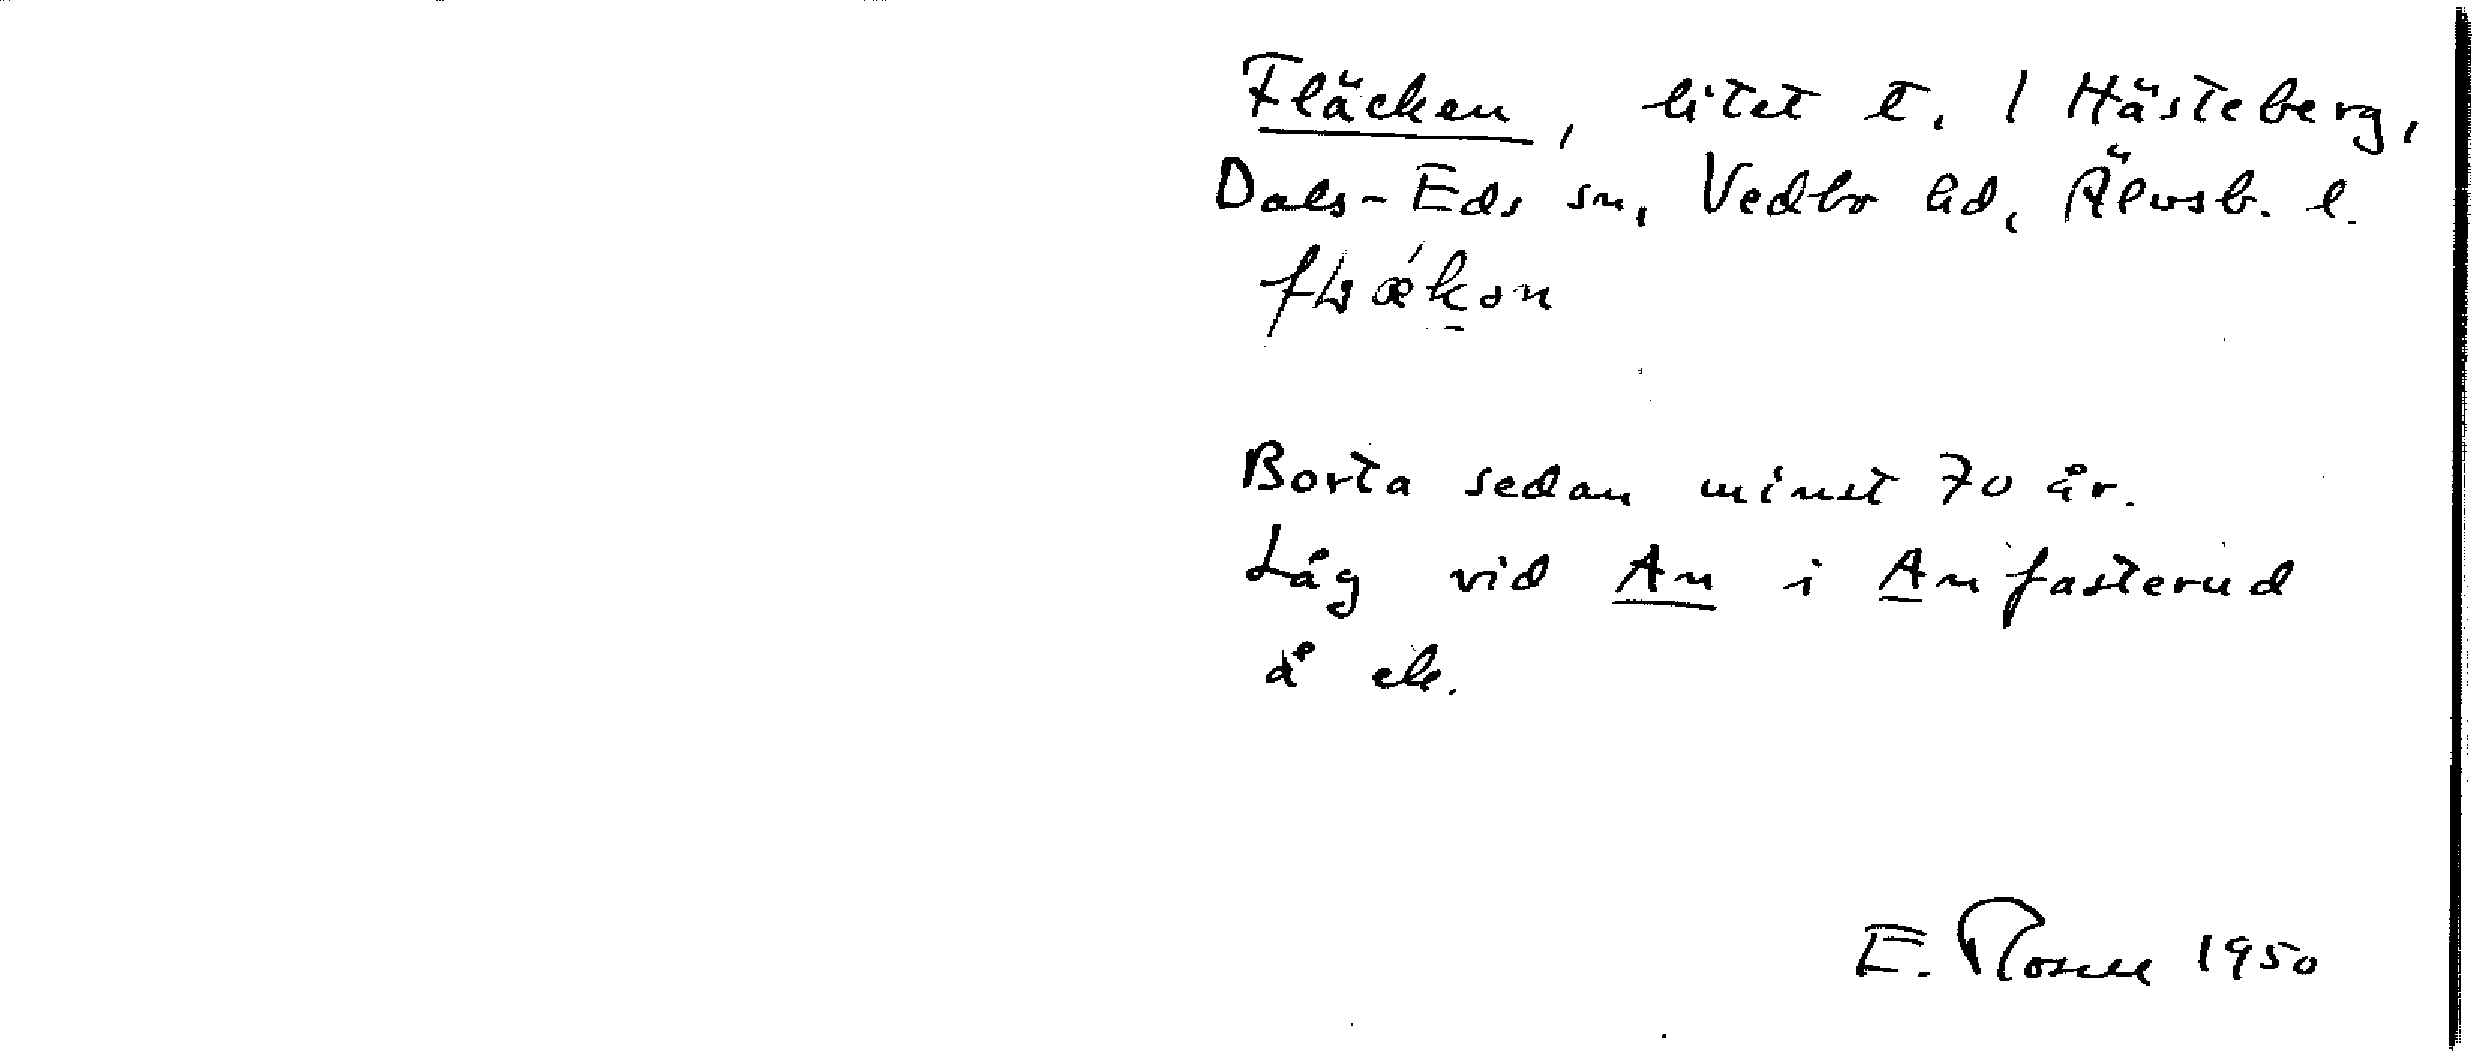 Fläcken, litet t. / Hästeberg,
Dals-Eds sn, Vedbo hd, Älvsb. l.
Borta sedan minst 70 år.
Låg vid An i Anfasterud
å ek.
E. Rosell 1950